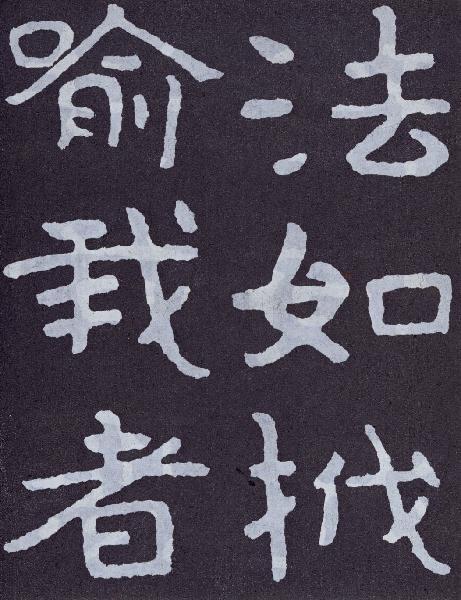 法如栰
喻我者